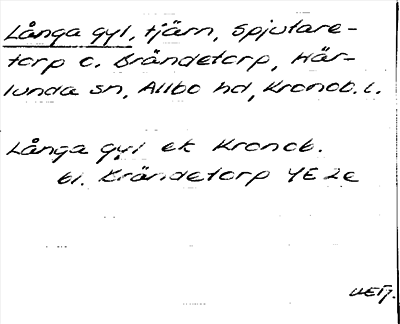 Långa gyl, tjärn, Spjutare-
torp o. Brändetorp, Här-
lunda sn, Allbo hd, Kronob. l.
Långa gyl ek Kronob.
bl. Brändetorp 4E 2e